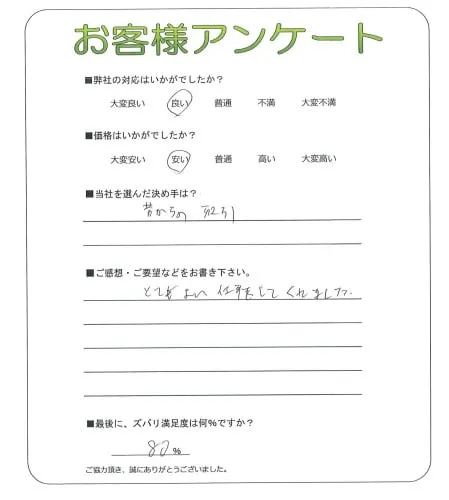 お客様アンケート
■弊社の対応はいかがでしたか？
大変良い 良い 普通 不満 大変不満
■価格はいかがでしたか？
大変安い 安い 普通 高い 大変高い
■当社を選んだ決め手は？
昔からの 取引
■ご感想・ご要望などをお書き下さい。
とてもよい 仕事をして くれました.
■最後に、ズバリ満足度は何％ですか？
80 %
ご協力頂き、誠にありがとうございました。